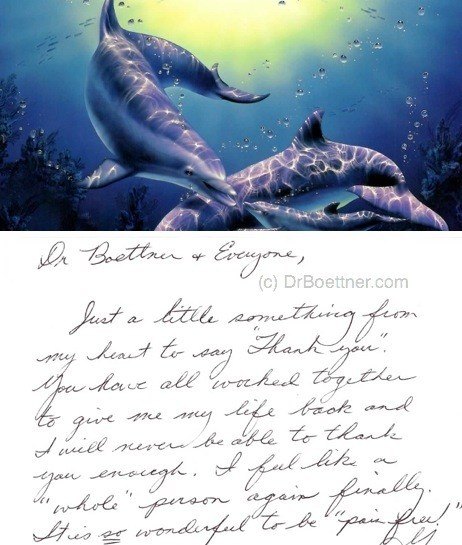 Dr Boettner & Everyone,
(c) DrBoettner.com
Just a little something from
my heart to say "Thank you".
You have all worked together
to give me my life back and
I will never be able to thank
you enough. I feel like a
"whole" person again finally.
It is so wonderful to be "pain free!"